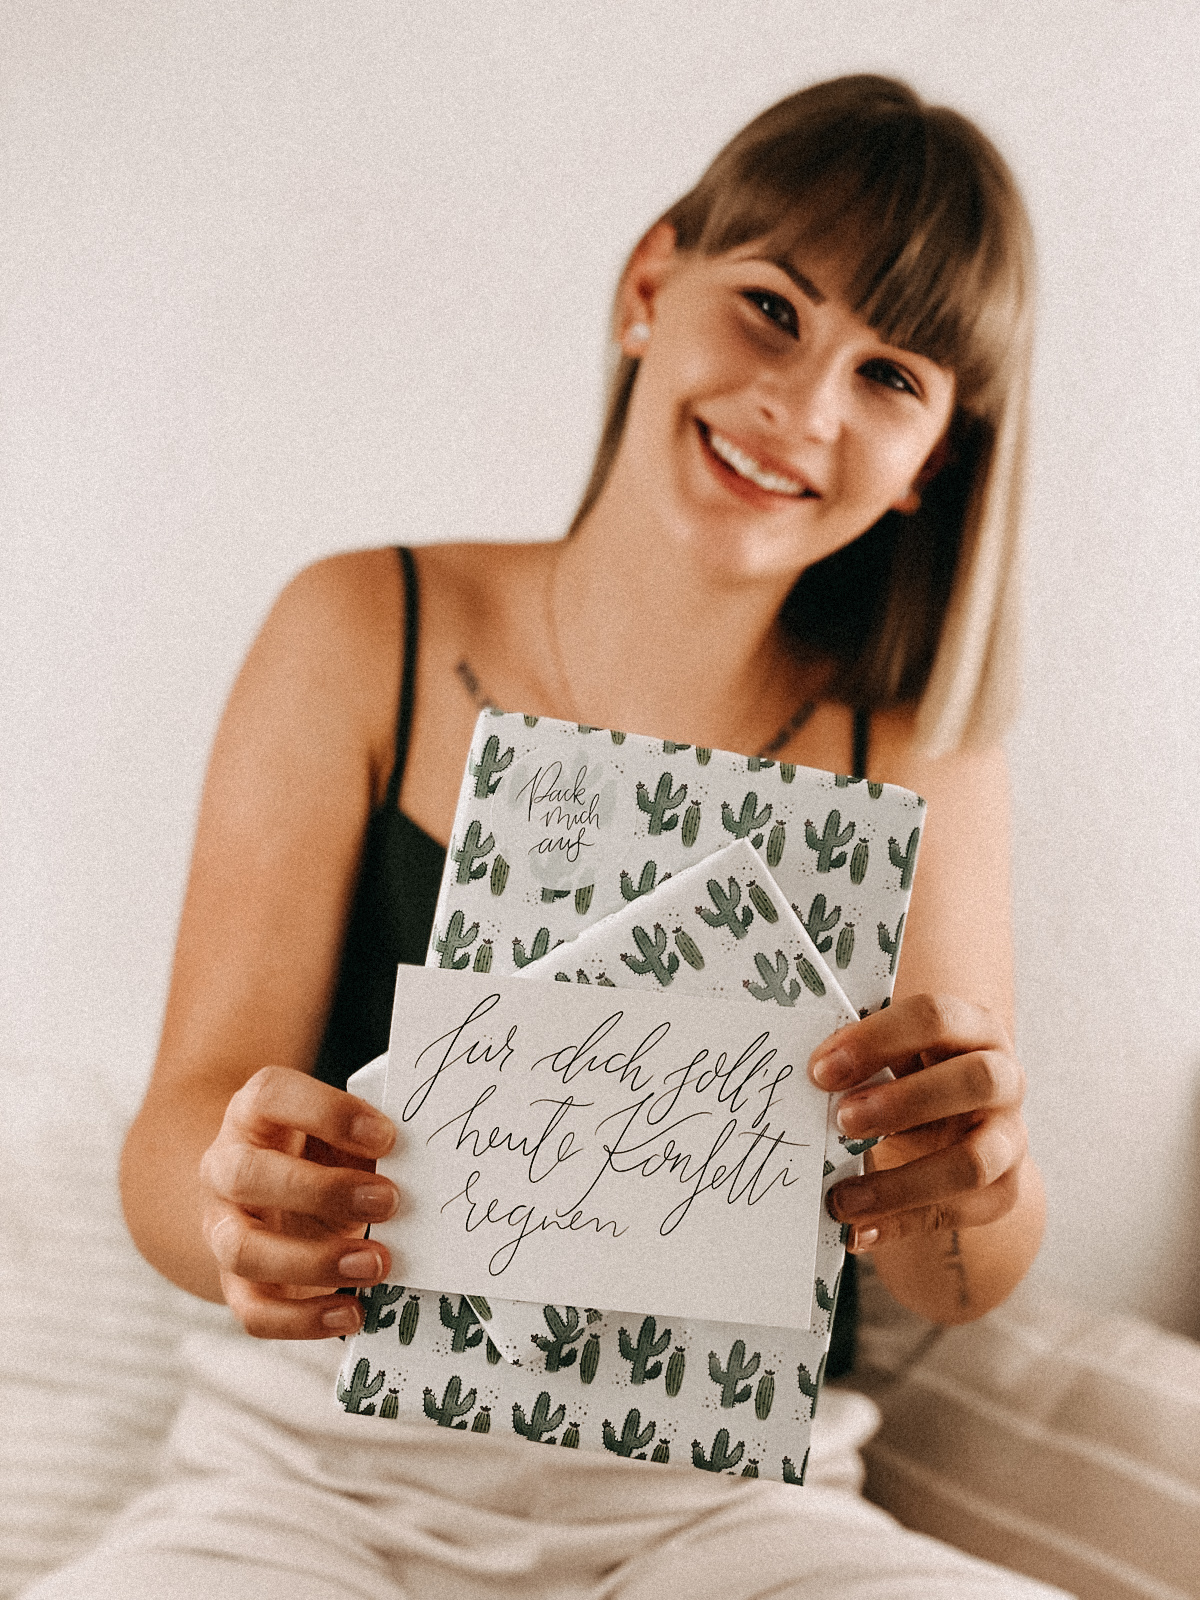 Pack
mich
auf
für dich soll's
heute Konfetti
regnen